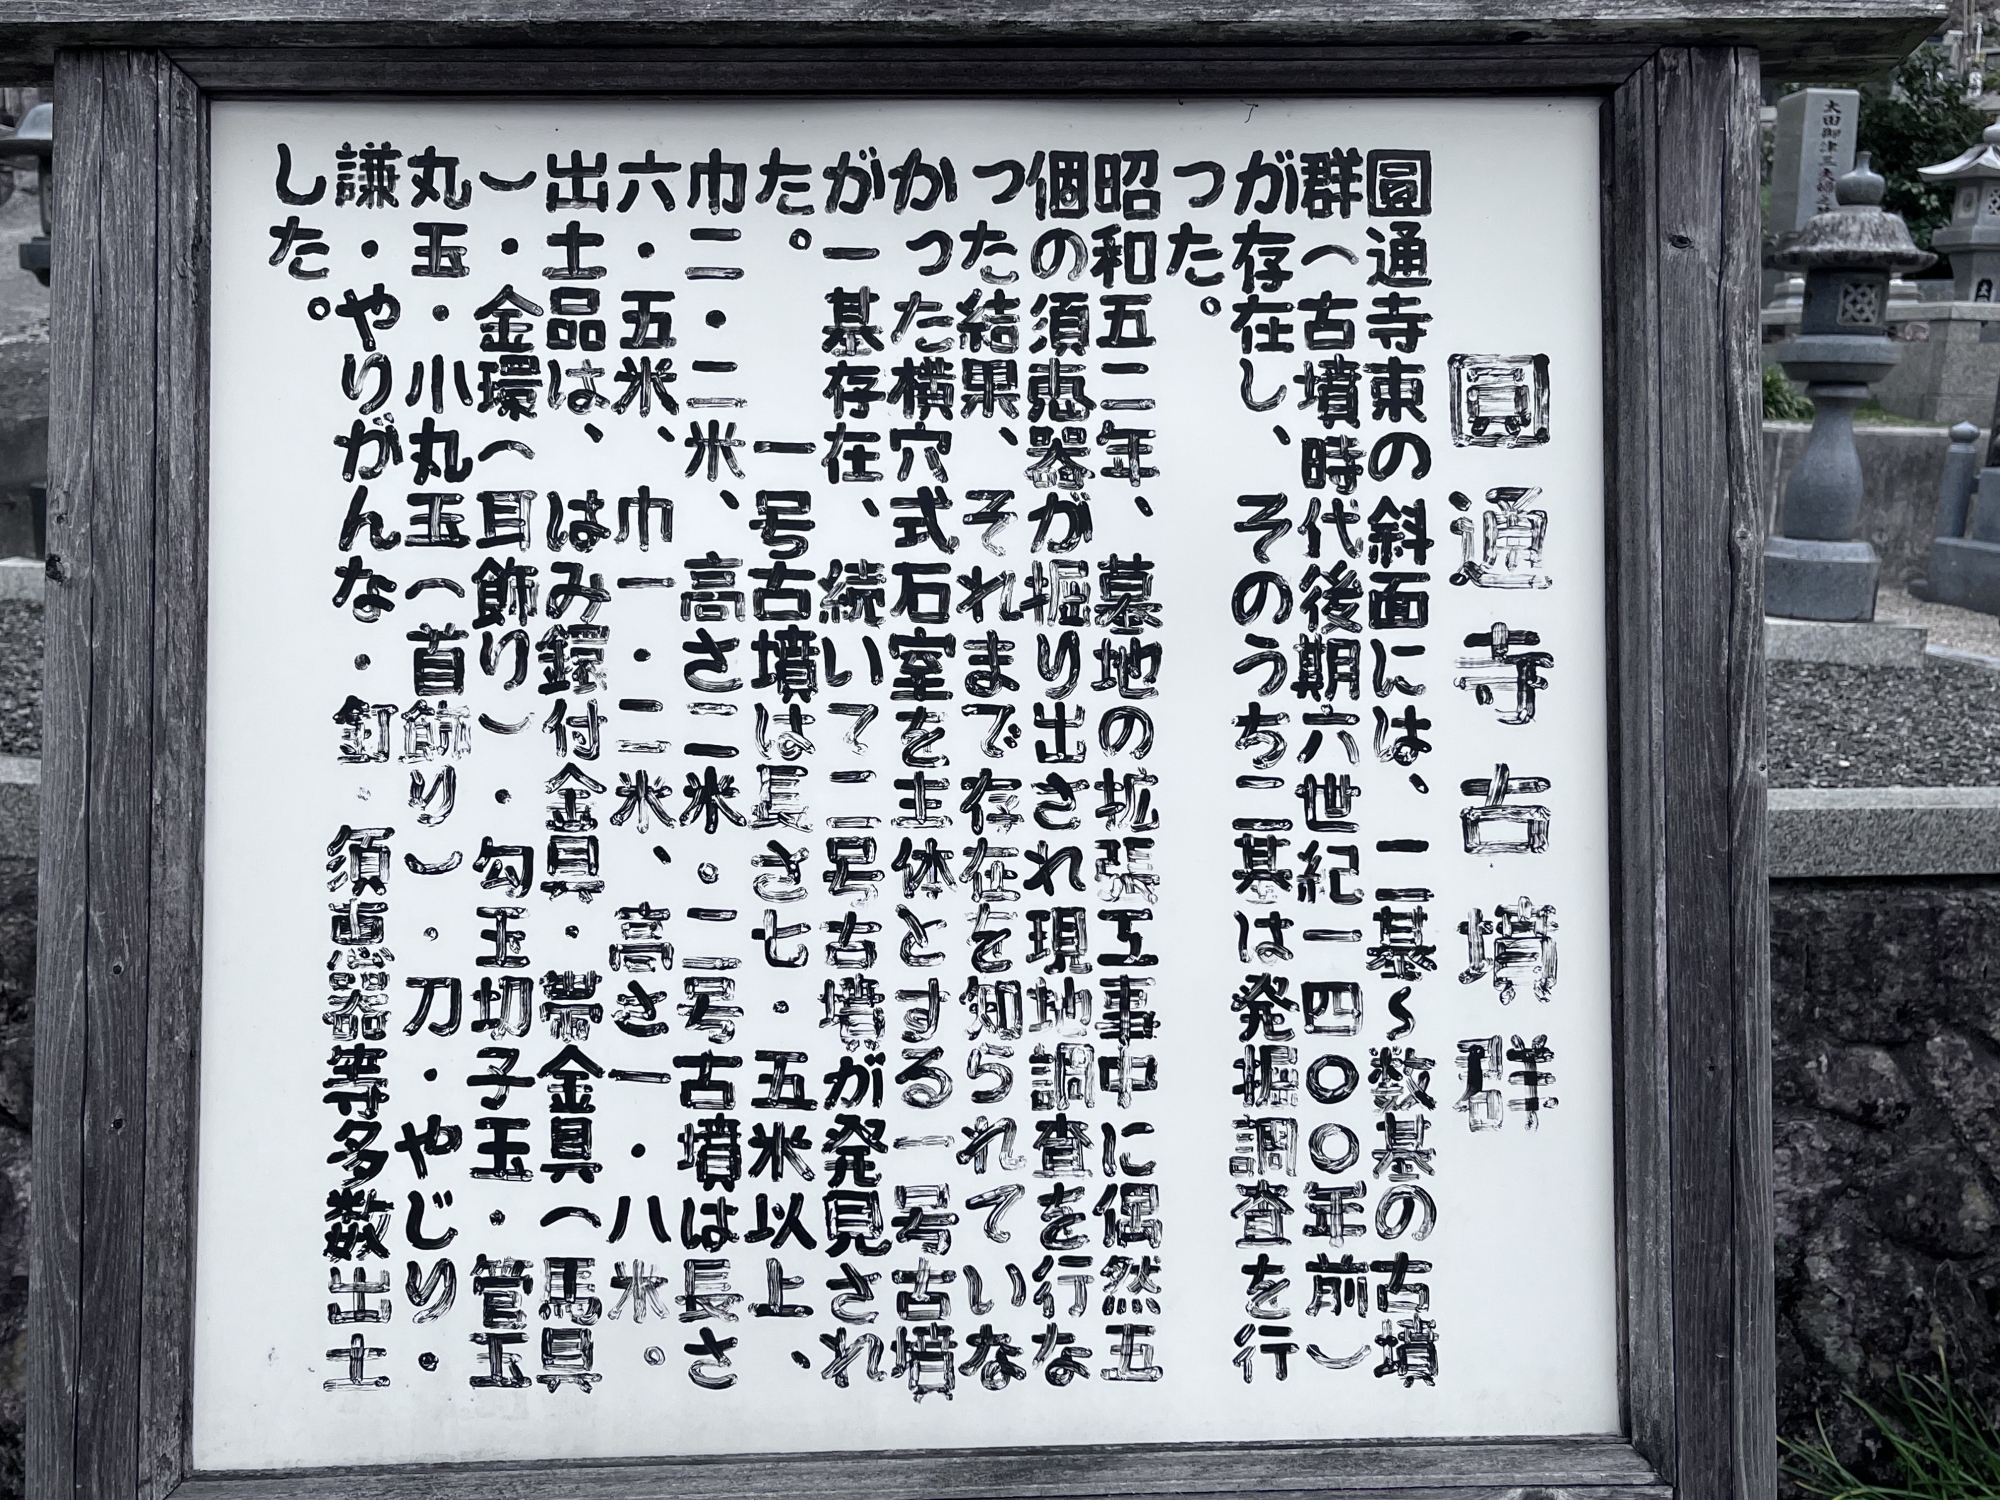 圓通寺古墳群
圓通寺東の斜面には、一二基~数基の古墳
群(古墳時代後期六世紀一四〇〇年前)
が存在し、そのうち二基は発掘調査を行
った。
昭和五二年、墓地の拡張工事中に偶然五
個の須恵器が堀り出され現地調査を行な
った結果、それまで存在を知られていな
かった横穴式石室を主休とする一号古墳
が一基存在、続いて二号古墳が発見され
た。
一号古墳は長さ七・五米以上、
巾二・二米、高さ二米・二号古墳は長さ
六・五米、巾一・二米、高さ一・八米。
出土品は、はみ鐶付金具・帯金具(馬具
)・金環(耳飾り)・勾玉切子玉・管玉
丸玉・小丸玉(首飾り)・刀・やじり・
謙・やりがんな・釘・須恵器等多数出土
した。
太田御津三夫婦之